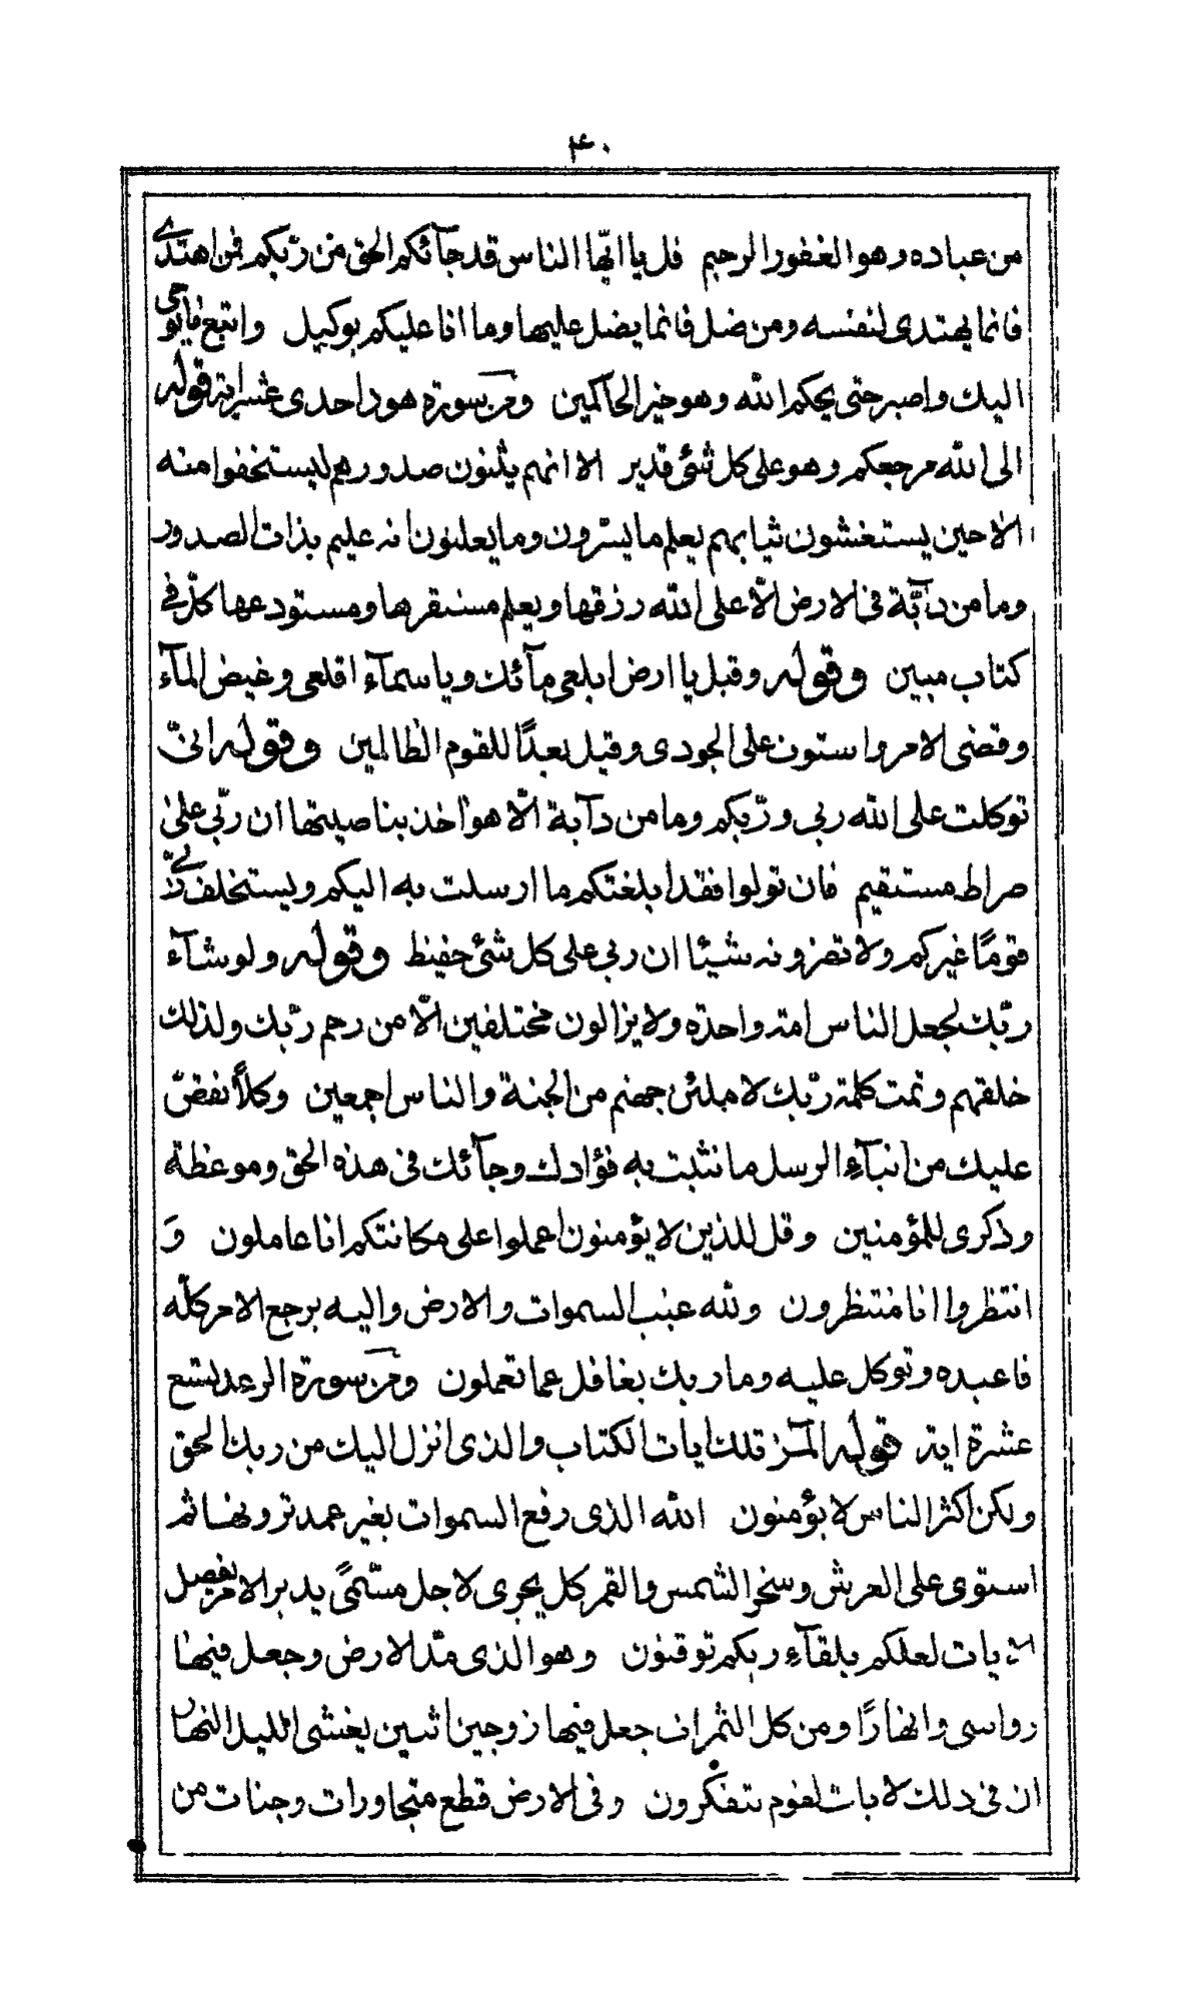 ۴۰
من عباده وهو الغفور الرحيم قل يا ايّها الناس قد جآئكم الحق من ربّكم فمن اهتدى
فانما يهتدى لنفسه ومن ضل فانما يضل عليها وما انا عليكم بوكيل واتبع ما يوحى
اليك واصبر حتى يحكم الله وهو خير الحاكمين ومن سورة هود احدى عشر اية قوله
الى الله مرجعكم وهو على كل شئ قدير الا انهم يثنون صدورهم ليستخفوا منه
الا حين يستغشون ثيابهم يعلم ما يسرّون وما يعلنون انه عليم بذات الصدور
وما من دآبّة فى الارض الّا على الله رزقها ويعلم مستقرها ومستودعها كلّ فى
كتاب مبين وقوله وقيل يا ارض ابلعى مآئك ويا سمآء اقلعى وغيض المآء
وقضى الامر واستون على الجودى وقيل بعدًا للقوم الظالمين وقوله انىّ
توكلت على الله ربى وربّكم وما من دآبة الّا هو اخذ بناصيتها ان ربّى على
صراط مستقيم فان تولوا فقد ابلغتكم ما ارسلت به اليكم ويستخلف ربّى
قومًا غيركم ولا تضرونه شيئا ان ربى على كل شئ حفيظ وقوله ولو شآء
ربّك لجعل الناس امة واحدة ولا يزالون مختلفين الّا من رحم ربّك ولذلك
خلقهم وتمت كلمة ربّك لاملئن جهنم من الجنة والناس اجمعين وكلًا نقصّ
عليك من انبآء الرسل ما نثبت به فؤادك وجآئك فى هذه الحق وموعظة
وذكرى للمؤمنين وقل للذين لا يؤمنون اعملوا على مكانتكم انا عاملون وَ
انتظروا انا منتظرون ولله غيب السموات والارض واليه يرجع الامر كلّه
فاعبده وتوكل عليه وما ربك بغافل عما تعملون ومن سورة الرعد تسع
عشرة اية قوله المٓر تلك ايات الكتاب والذى انزل اليك من ربك الحق
ولكن اكثر الناس لا يؤمنون الله الذى رفع السموات بغير عمد ترونها ثم
استوى على العرش وسخر الشمس والقمر كل يجرى لاجل مسّمىً يدبر الامر يفصل
الايات لعلكم بلقآء ربكم توقنون وهو الذى مدّ الارض وجعل فيها
رواسى وانهارًا ومن كل الثمرات جعل فيها زوجين اثنين يغشى الليل النهار
ان فى ذلك لايات لقوم يتفكّرون وفى الارض قطع متجاورات وجنات من